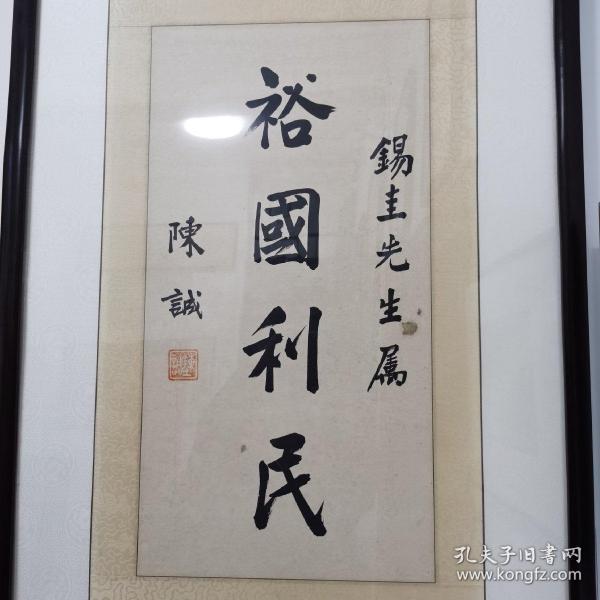 錫圭先生属
裕國利民
陳誠
孔夫子旧書网
www.kongfz.com